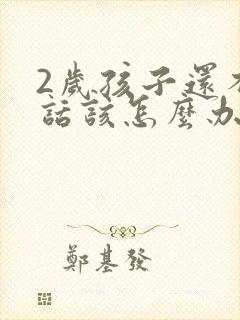 2歲孩子還
話該怎麼办
鄭基發